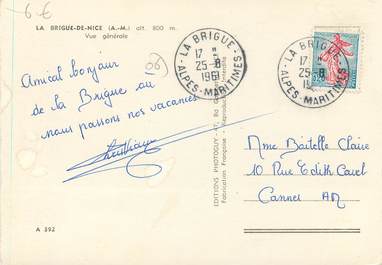 6 €
LA BRIGUE-DE-NICE (A.-M.) alt. 800 m.
Vue générale
(06)
Amical bonjour
de la Brigue où
nous passons nos vacances
A 592
EDITIONS PHOTOGUY
Fabrication Française - Reproduction
LA BRIGUE
17 H
25-8
1961
ALPES-MARITIMES
LA BRIGUE
17 H
25-8
ALPES-MARITIMES
Mme Baitelle Claire
10 Rue Edith Cavel
Cannes AM